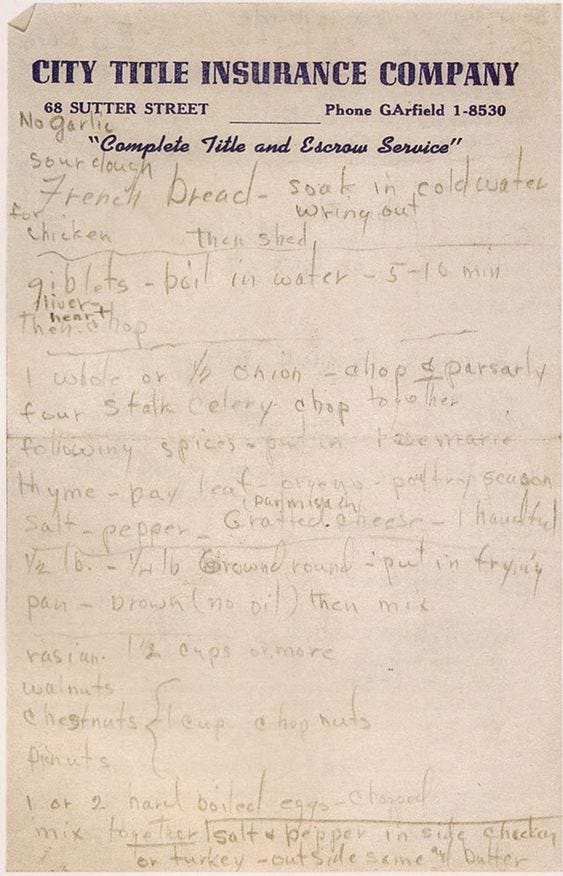 CITY TITLE INSURANCE COMPANY
68 SUTTER STREET Phone GArfield 1-8530
No Garlic
"Complete Title and Escrow Service"
sourdough
French Bread - soak in cold water
wring out
for
chicken then shed
giblets - boil in water - 5-10 min
liver-
heart
then chop
1 whole or 1/2 onion - chop & parsarly
four Stalk Celery chop together
following spices - put in rosemarie
thyme - bay leaf - oregeno - poltry season
(parmisain
Salt - pepper - Gratted cheese - 1 handful
1/2 lb. - 1/4 lb Ground round - put in frying
pan - brown (no oil) then mix
rasian. 1 1/2 cups or more
walnuts
Chestnuts { 1 cup chop nuts
pinuts
1 or 2 hard boiled eggs - chopped
mix together salt & pepper in side chicken
or turkey - outside same w/ butter